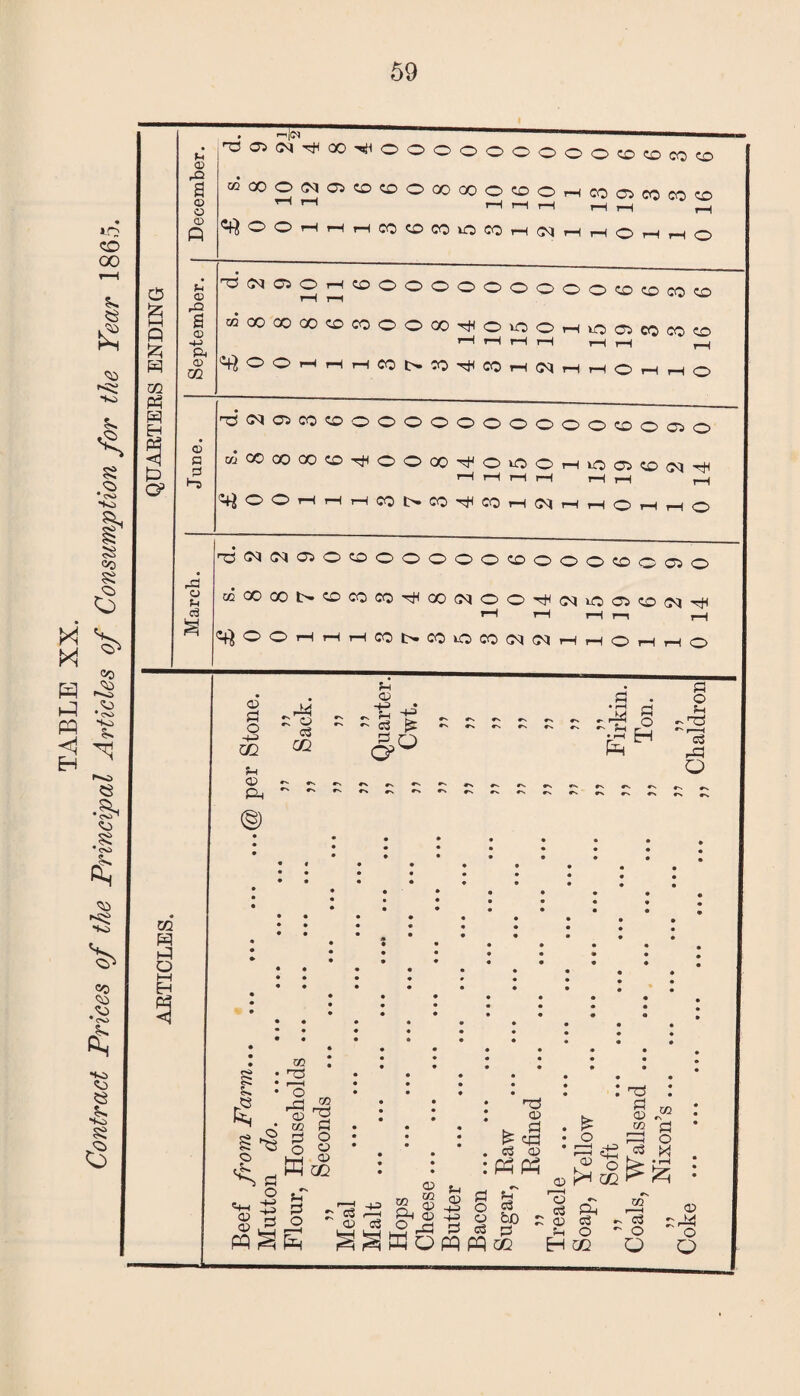 59
TABLE XX.
Contract Prices of the Principal Articles of Consumption for the Year 1865.
ARTICLES. QUARTERS ENDING
March. June. September. December.
£ s. d. £ s. d. £ s. d. £ s. d.
Beef from Farm... ... ... ...@ per Stone. 0 8 2 0 8 2 0 8 2 0 8 9
Mutton do. ... ... ... ... ,, ,, 0 8 2 0 8 9 0 8 9 0 10 2½
Flour, Households ... ... ... ,, Sack. 1 7 9 1 8 3 1 8 10 1 12 4
,, Seconds ... ... ... ,, ,, 1 6 0 1 6 6 1 6 11 1 9 8
Meal ... ... ... ... ... ,, ,, 1 3 6 1 4 0 1 3 6 1 6 4
Malt ... ... ... ... ... ,, Quarter. 3 3 0 3 0 0 3 0 0 3 6 0
Hops ... ... ... ... ... ,, Cwt. 7 4 0 7 0 0 7 0 0 6 0 0
Cheese ... ... ... ... ... ,, ,, 3 8 0 3 8 0 3 8 0 3 8 0
Butter ... ... ... ... ... ,, ,, 5 2 0 4 14 0 4 14 0 5 8 0
Bacon ... ... ... ... ... ,, ,, 3 10 0 3 10 0 3 10 0 3 10 0
Sugar, Raw ... ... ... ... ,, ,, 2 0 6 1 15 0 1 15 0 1 16 0
,, Refined ... ... ... ,, ,, 2 14 0 2 10 0 2 10 0 2 10 0
Treacle ... ... ... ... ... ,, ,, 1 2 0 1 1 0 1 1 0 1 1 0
Soap, Yellow ... ... ... ... ,, ,, 1 15 0 1 15 0 1 15 0 1 13 0
,, Soft ... ... ... ... ,, Firkin. 0 19 6 0 19 6 0 19 6 0 19 6
Coals, Wallsend ... ... ... ,, Ton. 1 6 0 1 6 0 1 3 6 1 3 6
,, Nixon's ... ... ... ... ,, ,, 1 2 9 1 2 9 1 3 3 1 3 3
Coke ... ... ... ... ... ,, Chaldron 0 14 0 0 14 0 0 16 6 0 16 6